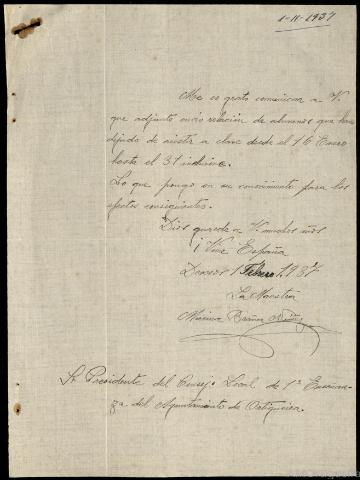 1-11-1937
Me es grato comunicar a V.
que adjunto envio relación de alumnos que han
dejado de asistir a clase desde el 16 Enero
hasta el 31 inclusive.
Lo que pongo en su conocimiento para los
efectos consiguientes.
Dios guarde a V. muchos años
¡Viva España
1 Febrero 1.937
La Maestra
Sr. Presidente del Consejo Local de 1ª Enseñan-
za del Ayuntamiento de Ortigueira.